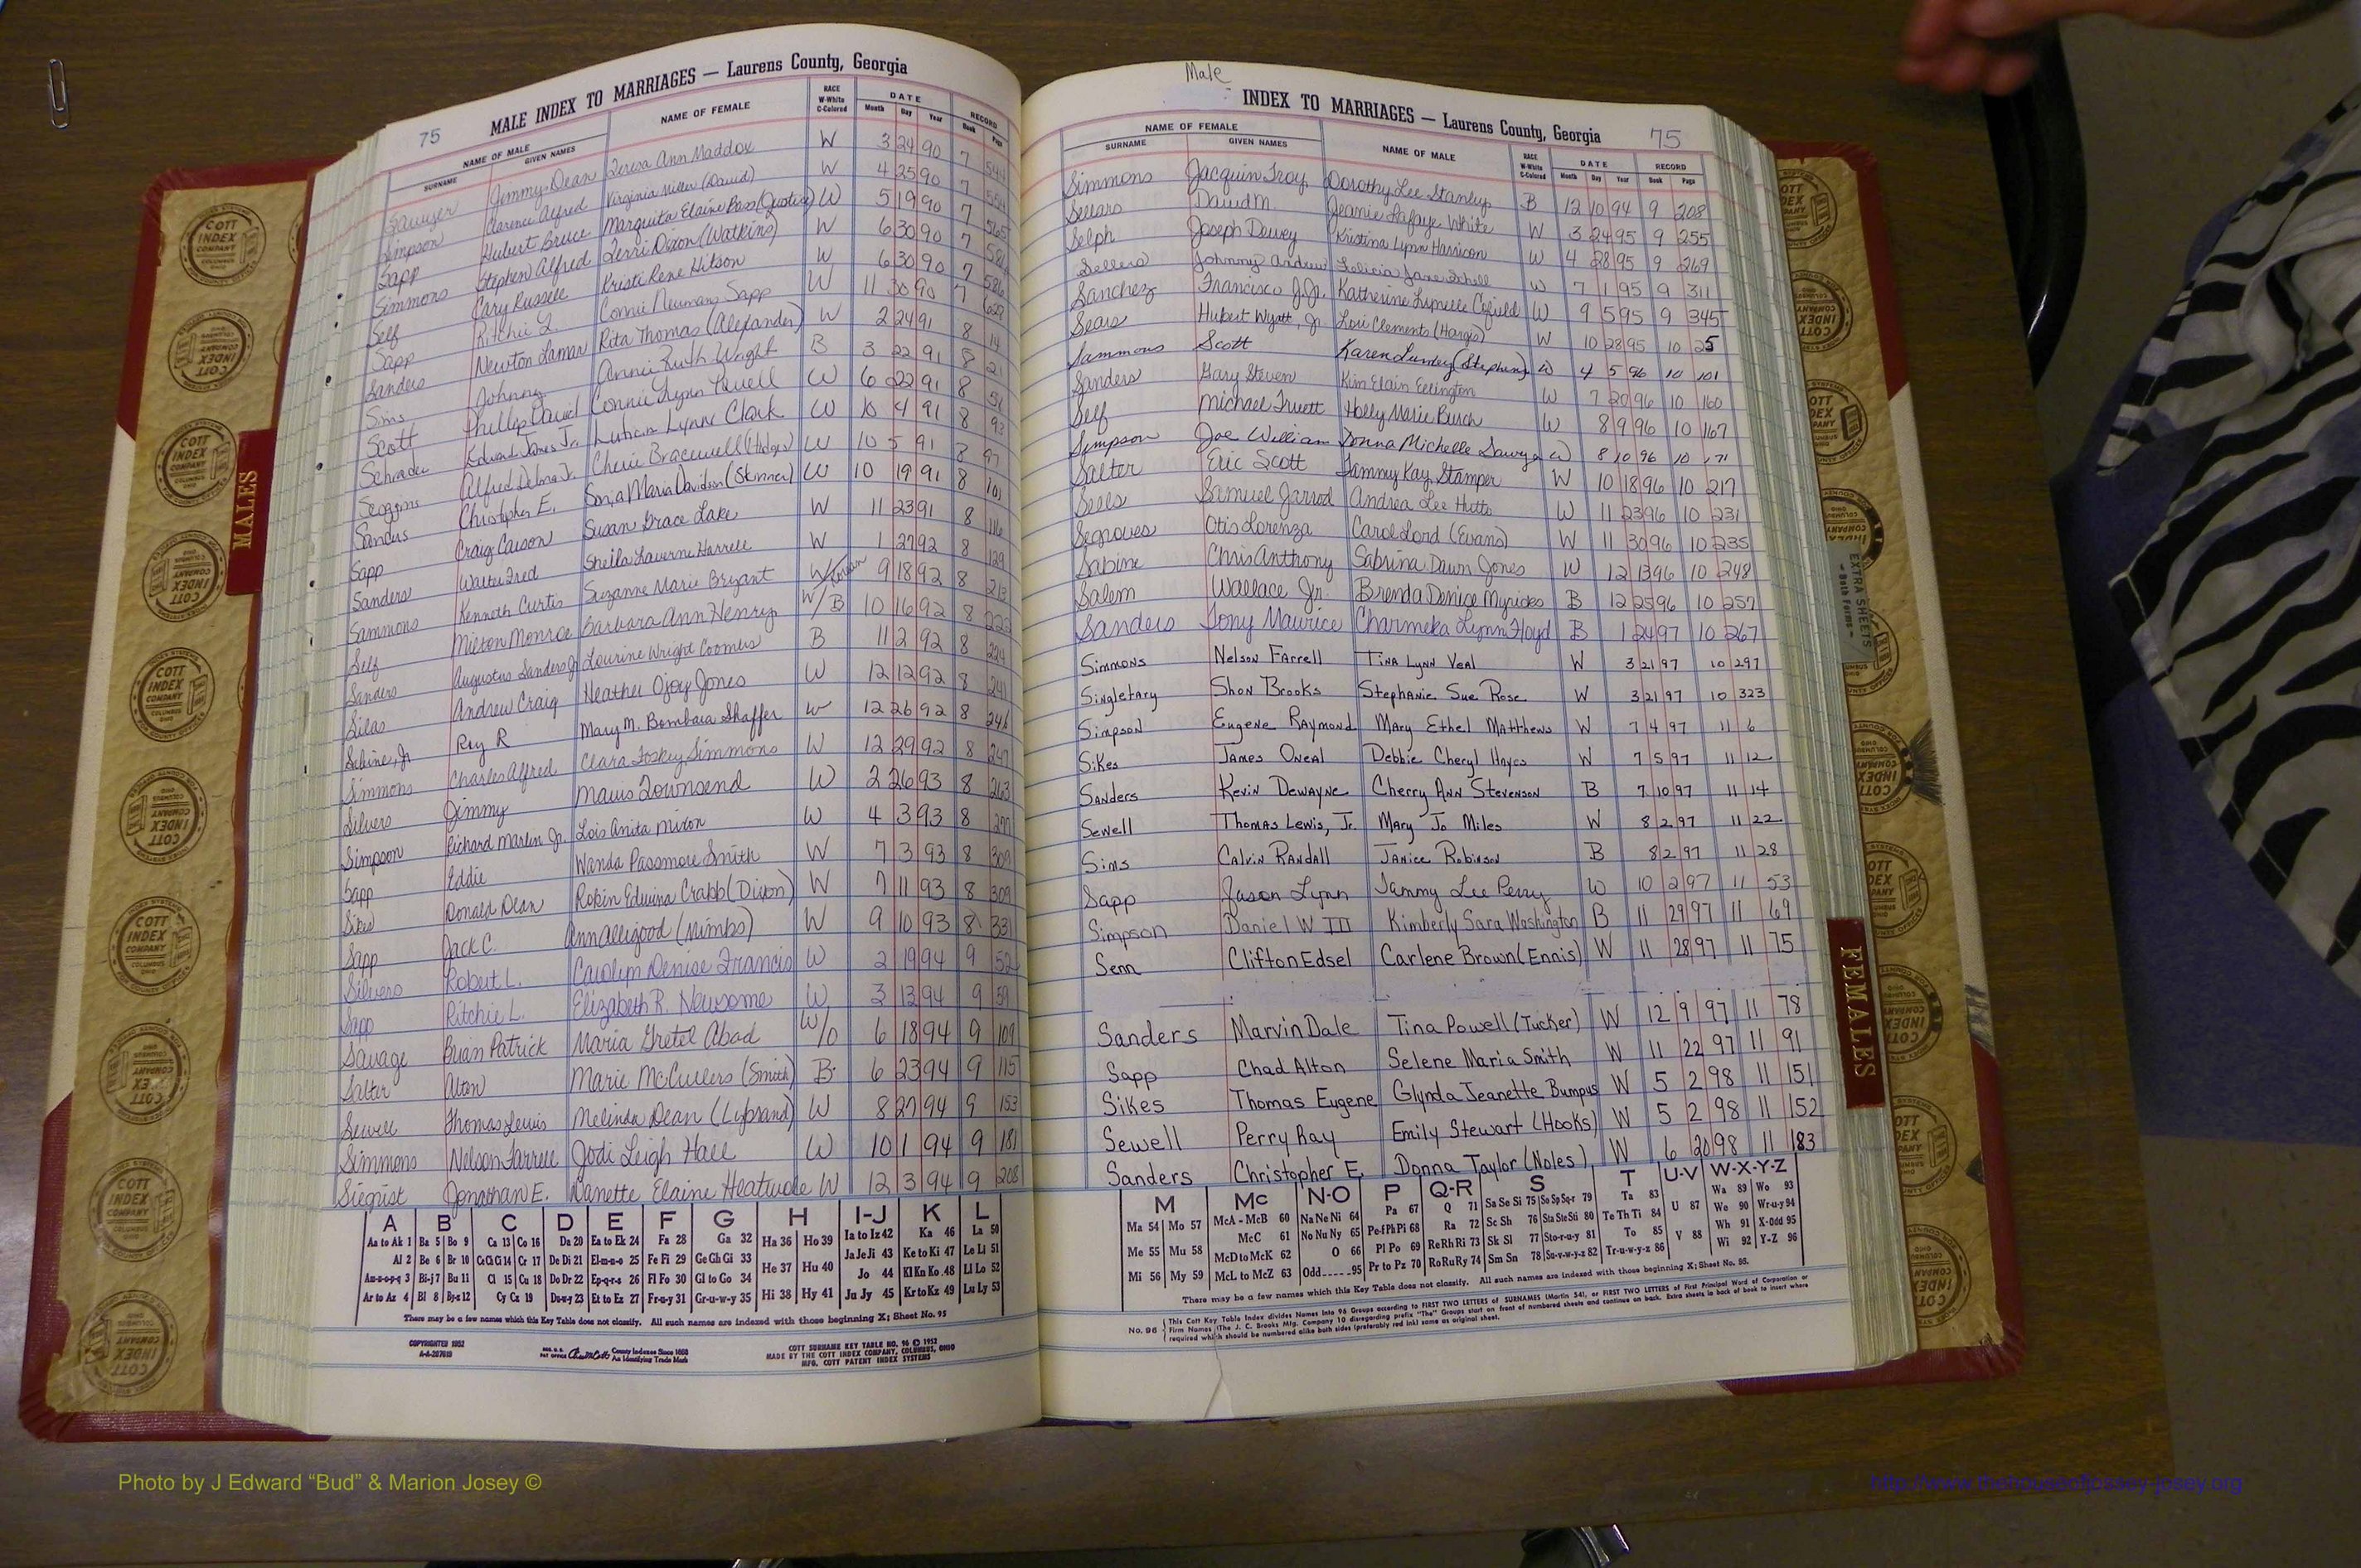 75
MALE INDEX TO MARRIAGES — Laurens County, Georgia
NAME OF MALE NAME OF FEMALE RACE W-White C-Colored DATE RECORD
SURNAME GIVEN NAMES Month Day Year Book Page
Jimmy Dean Teresa Ann Maddox W 3 24 90 7
Simpson Clarence Alfred Virginia Miller (David) W 4 25 90 7
Sapp Hubert Bruce Marguita Elaine W 5 19 90 7
Simmons Stephen Alfred Terri Dixon (Watkins) W 6 30 90 7
Self Cary Russell Kristi Rene Hitson W 6 30 90 7
Sapp Ritchie L. Connie Newmans Sapp W 11 30 90 7
Sanders Newton Lamar Rita Thomas (Alexander) W 2 24 91 8 14
Sims Johnny Annie Ruth Wright B 3 22 91 8 21
Scott Phillip David Connie Lynn W 6 22 91 8 51
Schrader Edward James Jr. Lynne Clark W 10 4 91 8 93
Scoggins Alfred Delma Jr. Cherie Bracewell (Hodges) W 10 5 91 8 97
Sanders Christopher E. Sonja Maria Davidson (Skinner) W 10 19 91 8 101
Sapp Craig Carson Susan Grace Lake W 11 23 91 8 116
Sanders Walter Fred Sheila Laverne Harrell W 1 27 92 8 129
Sammons Kenneth Curtis Suzanne Marie Bryant 9 18 92 8 213
Self Milton Monroe Barbara Ann Henry W/B 10 16 92 8 222
Sanders Augustus Sanders Jr Lourine Wright Coombs B 11 2 92 8 224
Silas Andrew Craig Heather Ojoy Jones W 12 12 92 8 241
Sabine, Jr Roy R Mary M. Bombara Shaffer W 12 26 92 8 246
Simmons Charles Alfred Clara Foskey Simmons W 12 29 92 8 247
Silvers Jimmy Mavis Townsend W 2 26 93 8 263
Simpson Richard Marlin Jr. Lois Anita Mixon W 4 3 93 8
Sapp Eddie Wanda Passmore Smith W 7 3 93 8
Sikes Donald Dean Robin Edwina Crabb (Dixon) W 7 11 93 8 309
Sapp Jack C. Ann Alligood (Mimbs) W 9 10 93 8 331
Silvers Robert L. Carolyn Denise Francis W 2 19 94 9 52
Sapp Ritchie L. Elizabeth R. Newsome W 3 13 94 9 59
Savage Brian Patrick Maria Gretel Abad W/O 6 18 94 9 109
Salter Alton Marie McCullers (Smith) B 6 23 94 9 115
Sewell Thomas Lewis Melinda Dean W 8 27 94 9 153
Simmons Nelson Farrell Jodi Leigh Hall W 10 1 94 9 181
Siegrist Jonathan E. Nanette Elaine Heatwole W 12 3 94 9 208
A B C D E F G H I-J K L
Aa to Ak 1 Ba 5 Bo 9 Ca 13 Co 16 Da 20 Ea to Ek 24 Fa 28 Ga 32 Ha 36 Ho 39 Ia to Iz 42 Ka 46 La 50
Al 2 Be 6 Br 10 Ce Ci Cl 14 Cr 17 De Di 21 El-m-n-o 25 Fe Fi 29 Ge Gh Gi 33 He 37 Hu 40 Ja Je Ji 43 Ke to Ki 47 Le Li 51
Am-n-o-p-q 3 Bi-j 7 Bu 11 Cl 15 Cu 18 Do Dr 22 Ep-q-r-s 26 Fl Fo 30 Gl to Go 34 Jo 44 Kl Kn Ko 48 Ll Lo 52
Ar to Az 4 Bl 8 By-z 12 Cy Cz 19 Du-w-y 23 Et to Ez 27 Fr-u-y 31 Gr-u-w-y 35 Hi 38 Hy 41 Ju Jy 45 Kr to Kz 49 Lu Ly 53
There may be a few names which this Key Table does not classify. All such names are indexed with those beginning X; Sheet No. 95
COPYRIGHTED 1952
County Indexes Since 1888
An Identifying Trade Mark
COTT SURNAME KEY TABLE NO. 96 © 1952
MADE BY THE COTT INDEX COMPANY, COLUMBUS, OHIO
MFG. COTT PATENT INDEX SYSTEMS
Male
INDEX TO MARRIAGES — Laurens County, Georgia 75
NAME OF FEMALE NAME OF MALE RACE W-White C-Colored DATE RECORD
SURNAME GIVEN NAMES Month Day Year Book Page
Simmons Jacquin Troy Dorothy Lee Stanley B 12 10 94 9 208
Sellars David M. Jeanie Lafaye White W 3 24 95 9 255
Selph Joseph Dewey Kristina Lynn Harrison W 4 28 95 9 269
Sellers Johnny Andrew Felicia Jane W 7 1 95 9 311
Sanchez Francisco J.G. Katherine Lynelle Cofield W 9 5 95 9 345
Sears Hubert Wyatt, Jr Lori Clements (Hargis) W 10 28 95 10 25
Sammons Scott Karen (Stephens) W 4 5 96 10 101
Sanders Gary Steven Kim Elain Ellington W 7 20 96 10 160
Self Michael Truett Holly Marie Burch W 8 9 96 10 167
Simpson Joe William Donna Michelle Sawyer W 8 10 96 10 171
Salter Eric Scott Tammy Kay Stamper W 10 18 96 10 217
Sells Samuel Jarrod Andrea Lee Hutto W 11 23 96 10 231
Segroves Otis Lorenza Carol Lord (Evans) W 11 30 96 10 235
Sabine Chris Anthony Sabrina Dawn Jones W 12 13 96 10 248
Salem Wallace Jr. Brenda Denise Myricks B 12 25 96 10 257
Sanders Tony Maurice Charmeka Lynn Floyd B 1 24 97 10 267
Simmons Nelson Farrell Tina Lynn Veal W 3 21 97 10 297
Singletary Shon Brooks Stephanie Sue Rose W 3 21 97 10 323
Simpson Eugene Raymond Mary Ethel Matthews W 7 4 97 11 6
Sikes James Oneal Debbie Cheryl Hayes W 7 5 97 11 12
Sanders Kevin Dewayne Cherry Ann Stevenson B 7 10 97 11 14
Sewell Thomas Lewis, Jr. Mary Jo Miles W 8 2 97 11 22
Sims Calvin Randall Janice Robinson B 8 2 97 11 28
Sapp Jason Lynn Tammy Lee Perry W 10 2 97 11 53
Simpson Daniel W III Kimberly Sara Washington B 11 29 97 11 69
Senn Clifton Edsel Carlene Brown (Ennis) W 11 28 97 11 75
Sanders Marvin Dale Tina Powell (Tucker) W 12 9 97 11 78
Sapp Chad Alton Selene Maria Smith W 11 22 97 11 91
Sikes Thomas Eugene Glynda Jeanette Bumpus W 5 2 98 11 151
Sewell Perry Ray Emily Stewart (Hooks) W 5 2 98 11 152
Sanders Christopher E. Donna Taylor (Noles) W 6 20 98 11 183
M Mc N-O P Q-R S T U-V W-X-Y-Z
Ma 54 Mo 57 McA - McB 60 Na Ne Ni 64 Pa 67 Q 71 Sa Se Si 75 So Sp Sq-r 79 Ta 83 U 87 Wa 89 Wo 93
Me 55 Mu 58 McC 61 No Nu Ny 65 Pe-f Ph Pi 68 Ra 72 Sc Sh 76 Sta Ste Sti 80 Te Th Ti 84 We 90 Wr-u-y 94
McD to McK 62 O 66 Pl Po 69 Re Rh Ri 73 Sk Sl 77 Sto-r-u-y 81 To 85 V 88 Wh 91 X-Odd 95
Mi 56 My 59 McL to McZ 63 Odd 95 Pr to Pz 70 Ro Ru Ry 74 Sm Sn 78 Su-v-w-y-z 82 Tr-u-w-y-z 86 Wi 92 Y-Z 96
There may be a few names which this Key Table does not classify. All such names are indexed with those beginning X; Sheet No. 95.
No. 96 This Cott Key Table Index divides Names Into 96 Groups according to FIRST TWO LETTERS of SURNAMES (Martin 54), or FIRST TWO LETTERS of First Principal Word of Corporation or
Firm Names (The J. C. Brooks Mfg. Company 10 disregarding prefix "The" Groups start on front of numbered sheets and continue on back. Extra sheets in back of book to insert where
required which should be numbered alike both sides (preferably red ink) same as original sheet.
MALES
FEMALES
EXTRA SHEETS
- Both Forms -
COTT INDEX COMPANY COLUMBUS OHIO
Photo by J Edward “Bud” & Marion Josey ©
http://www.thehouseofjossey-josey.org